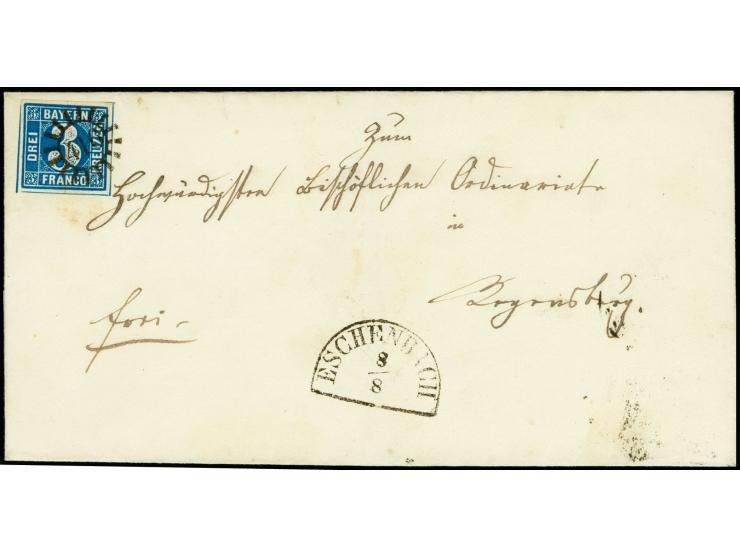 BAYERN
DREI
FRANCO
Zum
Hochwürdigsten Bischöflichen Ordinariate
in
Regensburg.
frei
ESCHENBACH
8
8